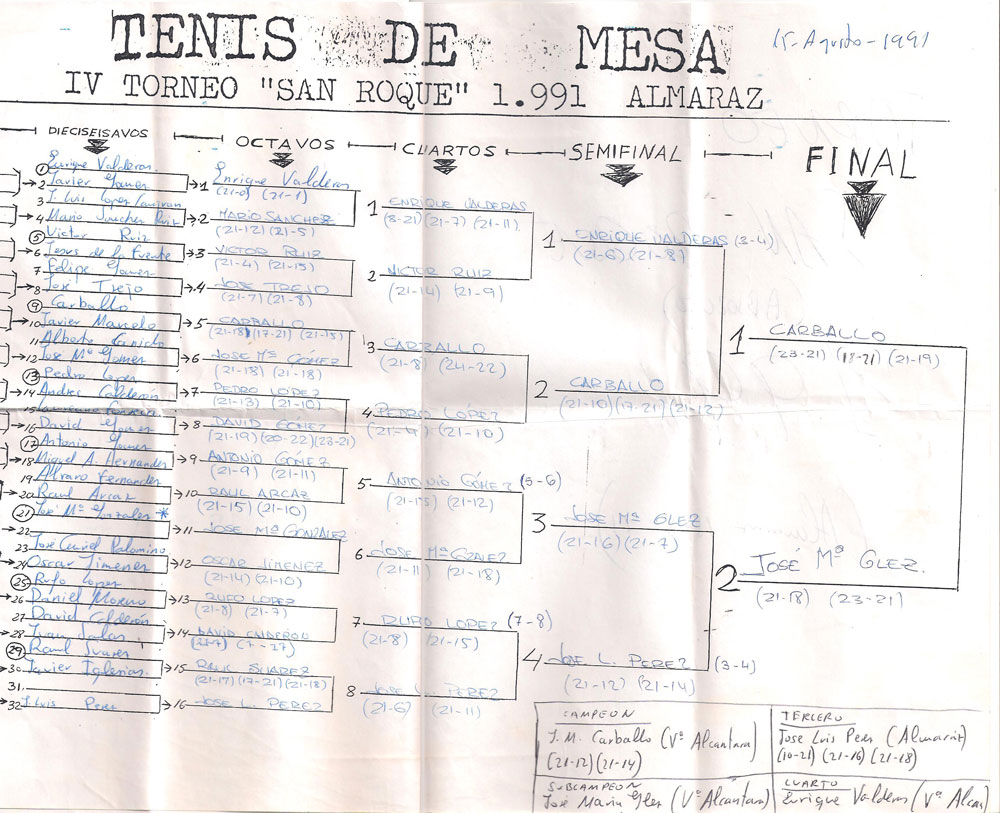 TENIS DE MESA
15-Agosto-1991
IV TORNEO "SAN ROQUE" 1.991 ALMARAZ
DIECISEISAVOS
OCTAVOS
CUARTOS
SEMIFINAL
FINAL
1 Enrique Valderas
2 Javier Gomez
3 J. Luis Lopez
4 Mario Sanchez Ruiz
5 Victor Ruiz
6 Jesus de la Fuente
7 Felipe Gomez
8 José Trejo
9 Carballo
10 Javier Marcelo
11 Alberto
12 Jose Mª Gomez
13 Pedro Lopez
14 Andres Calderón
15
16 David Gomez
17 Antonio Gomez
18 Miguel A. Hernandez
19 Alvaro Fernandez
20 Raul Arcaz
21 José Mª Gonzalez *
22
23 José Curiel Palomino
24 Oscar Jimenez
25 Rufo Lopez
26 Daniel Moreno
27 David Calderón
28 Juan
29 Raul Suarez
30 Javier Iglesias
31.
32 J. Luis Perez
1 Enrique Valderas
(21-0) (21-1)
2 MARIO SANCHEZ
(21-12) (21-5)
3 VICTOR RUIZ
(21-4) (21-15)
4 JOSE TREJO
(21-7) (21-8)
5 CARBALLO
(21-18) (17-21) (21-15)
6 JOSE Mª GÓMEZ
(21-18) (21-18)
7 PEDRO LÓPEZ
(21-13) (21-10)
8 DAVID GÓMEZ
(21-19) (20-22) (23-21)
9 ANTONIO GÓMEZ
(21-9) (21-11)
10 RAUL ARCAZ
(21-15) (21-10)
11 JOSE Mª GONZALEZ
12 OSCAR JIMENEZ
(21-14) (21-10)
13 RUFO LOPEZ
(21-8) (21-7)
14 DAVID CALDERON
15 RAUL SUAREZ
(21-17) (17-21) (21-18)
16 JOSE L. PEREZ
1 ENRIQUE VALDERAS
(8-21) (21-7) (21-11)
2 VICTOR RUIZ
(21-14) (21-9)
3 CARBALLO
(21-8) (24-22)
4 PEDRO LOPEZ
(21-9) (21-10)
5 ANTONIO GÓMEZ (5-6)
(21-15) (21-12)
6 JOSE Mª GZALEZ
(21-11) (21-18)
7 RUFO LOPEZ (7-8)
(21-8) (21-15)
8 JOSE L. PEREZ
(21-6) (21-11)
1 ENRIQUE VALDERAS (3-4)
(21-6) (21-8)
2 CARBALLO
(21-10) (17-21) (21-12)
3 JOSE Mª GLEZ
(21-16) (21-7)
4 JOSE L. PEREZ (3-4)
(21-12) (21-14)
1 CARBALLO
(23-21) (18-21) (21-19)
2 JOSÉ Mª GLEZ.
(21-18) (23-21)
CAMPEON
J. M. Carballo (Vª Alcantara)
(21-12) (21-14)
TERCERO
Jose Luis Perez (Almaraz)
(10-21) (21-16) (21-18)
SUBCAMPEON
José Maria Glez (Vª Alcantara)
CUARTO
Enrique Valderas (Vª Alcan)